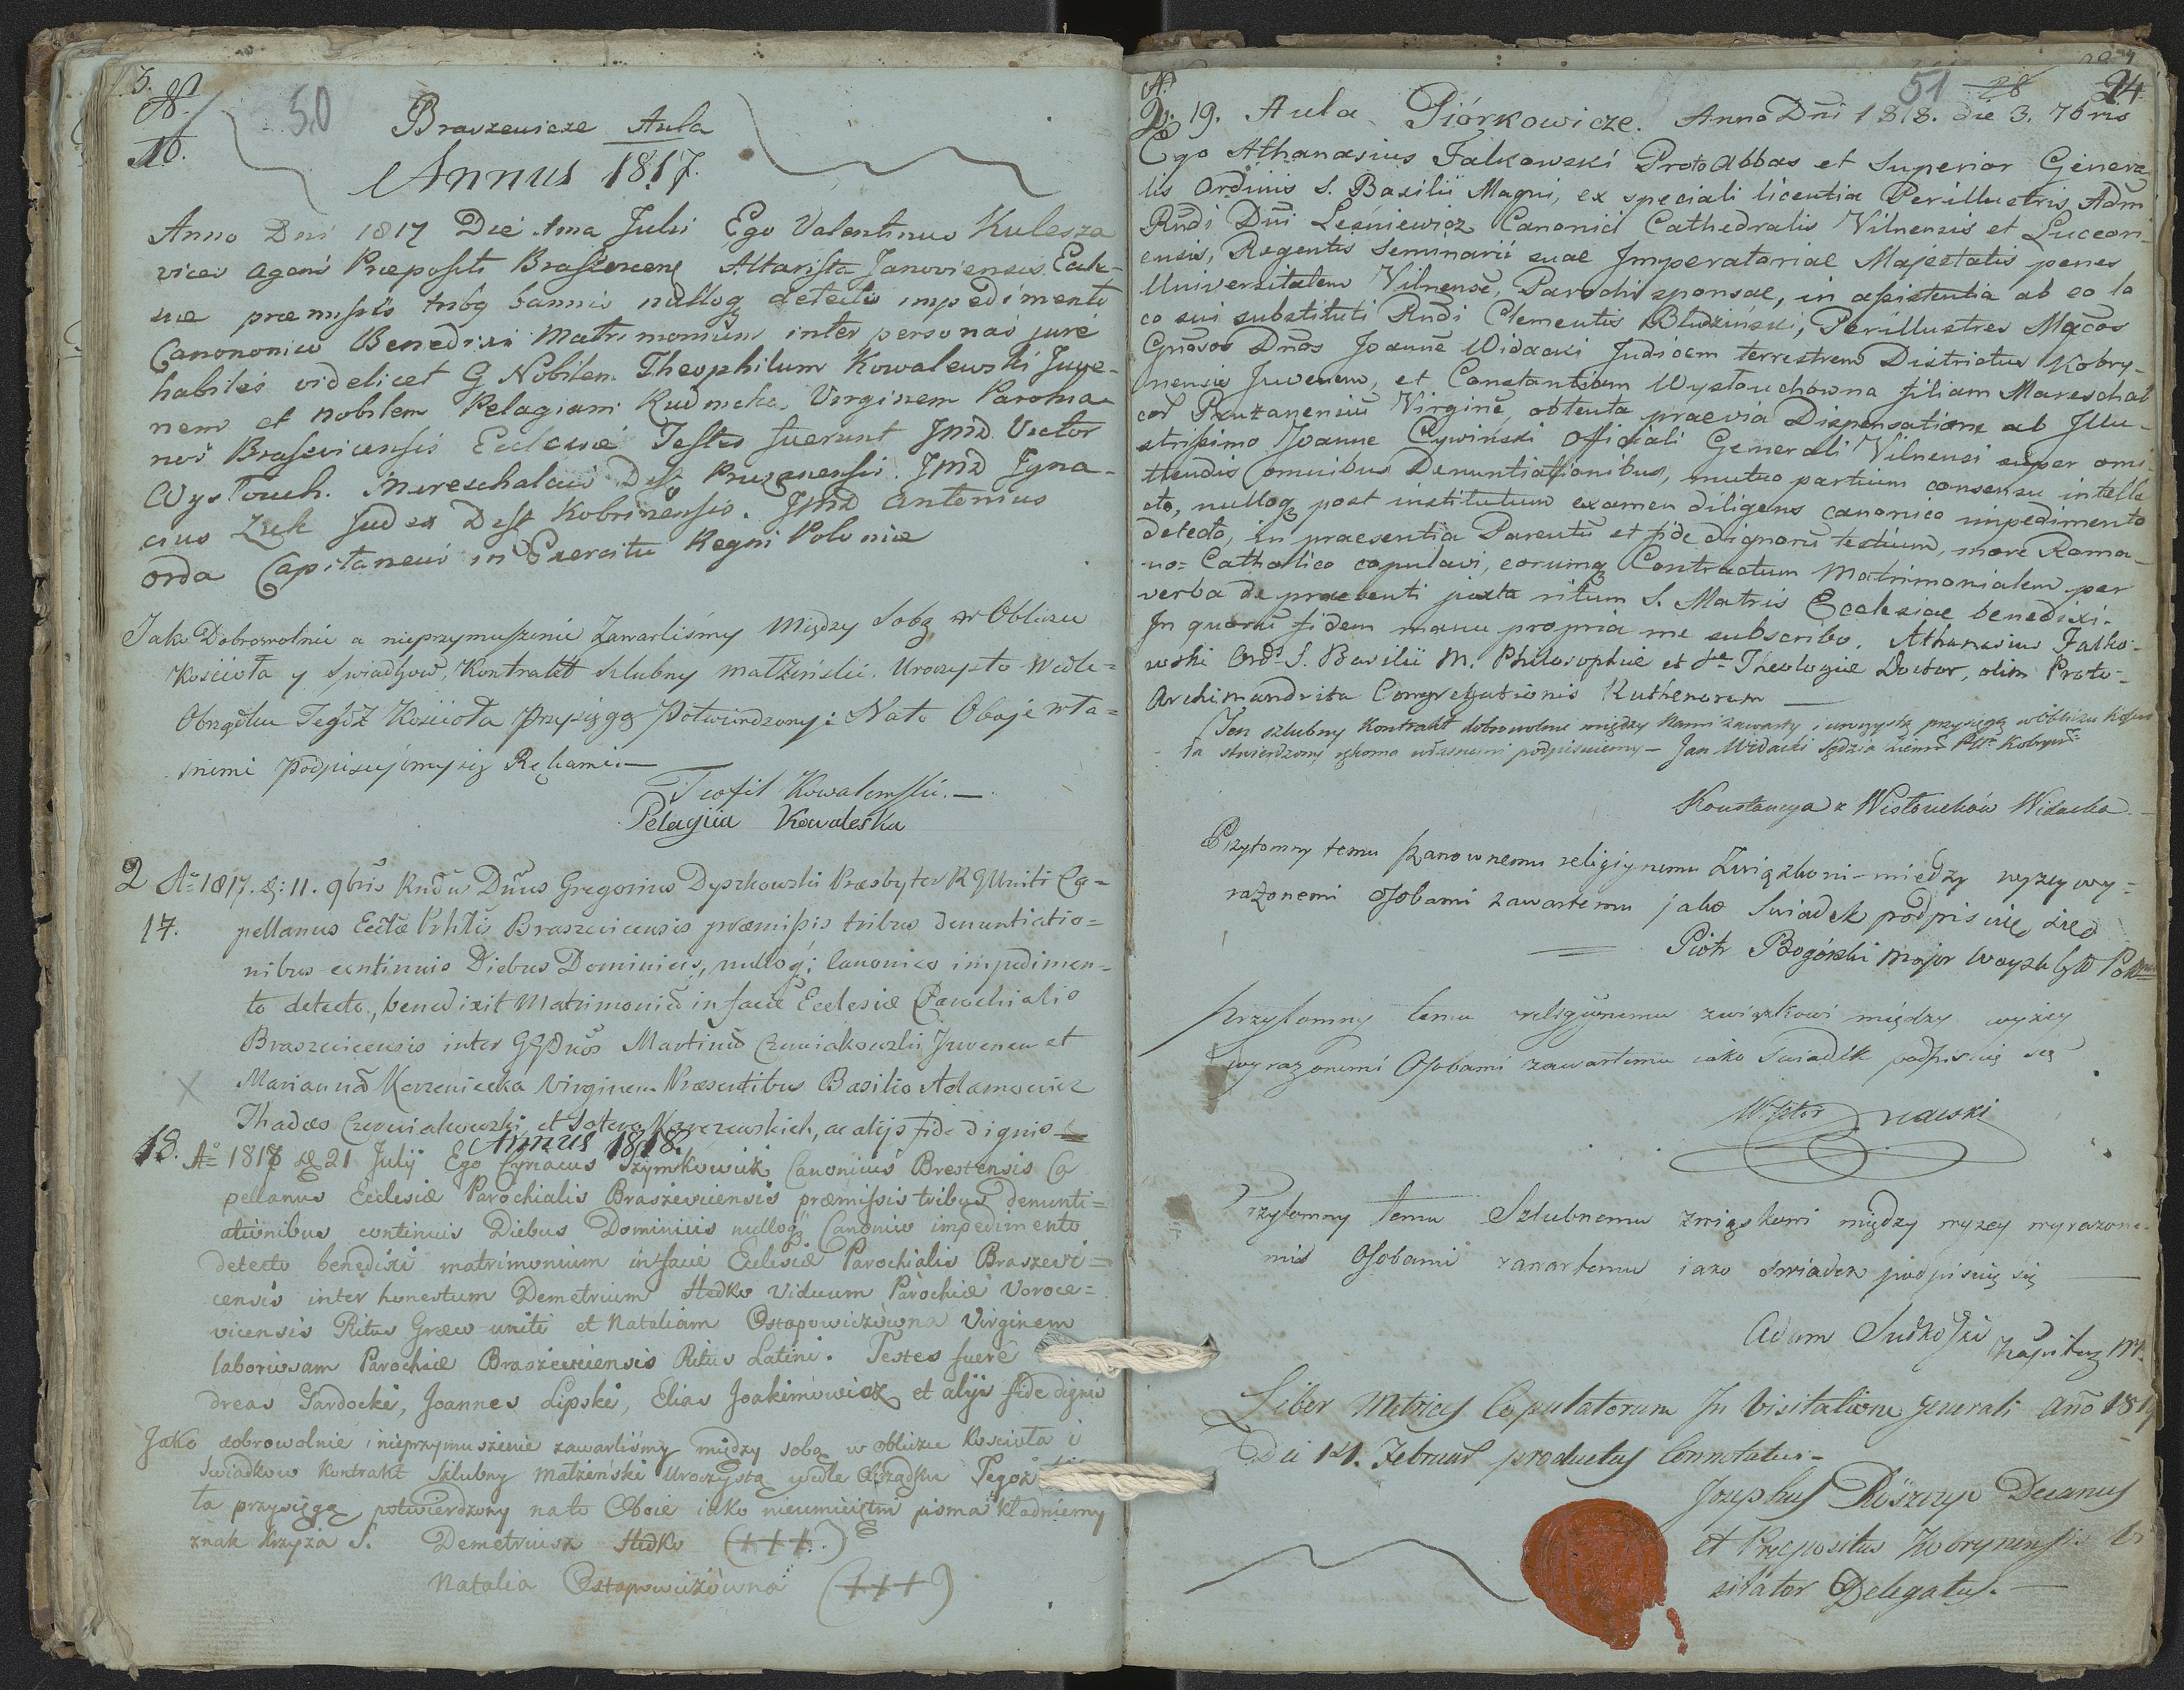 50
N
16.
Braszewicze Aula
Annus 1817.
Anno Dni 1817 Die 1ma Julii Ego Valentinus Kulesza
vices agens Præpositi Altarista Janoviensis Eccle-
siæ præmissis tribq bannis nulloq detecto impedimento
Canononico Benedixi Matrimonium inter personas jure
habiles videlicet G Nobilem Theophilum Kowalewski Juve-
nem et nobilem Pelagiam Rudnicka Virginem Parochia-
Ecclesiæ Testes fuerunt Victor
WysTouch. Igna-
cius Zuk Judex Kobrinensis. Antonius
Orda Capitaneus in Exercitu Regni Poloniæ
Jako Dobrowolnie a nieprzymuszenie Zawarliśmy Między Sobą w Obliczu
Kościoła y Swiadkow, Kontrakt Szlubny małżeński. Uroczysto Wedle=
Obrządku Tegoż Kościoła Przysięgą Potwierdzony: Nato Oboje wła=
snemi Podpisujemy się Rękami.—
Teofil Kowalewski.—
Pelagiia Kowaleska
2 Aº 1817. d: 11. 9bris Rndus Dnus Gregorius Dyszkowski Præsbyter R G Uniti Ca=
17. pellanus Braszevicensis præmissis tribus denuntiatio=
nibus continuis Diebus Dominicis, nulloq; Canonico impedimen-
to detecto, benedixit Matrimoniū in facie Ecclesiæ Parochialis
Braszevicensis inter Martinū Czerniakowski Juvenem et
Mariannā Korzeniecka Virginem Præsentibus Basilio Adamowicz
Thadæo Czerniakowski, et ac alijs fide dignis
Annus 1818.
18. Aº 1818 d 21 Julij Ego Cyriacus Szymkowicz Canonicus Brestensis Ca
pellanus Ecclesiæ Parochialis Braszeviciensis præmissis tribus denunti=
ationibus continuis Diebus Dominicis nulloq Canonico impedimento
detecto benedixi matrimonium in facie Ecclesiæ Parochialis Braszevi=
censis inter honestum Demetrium Hedko Viduum Parochiæ Voroce=
vicensis Ritus Græco uniti et Nataliam Ostapowiczówna Virginem
laboriosam Parochiæ Braszeviciensis Ritus Latini. Testes fuere
dreas Tardocki, Joannes Lipski, Elias Joakimowicz et alijs fide digni
Jako dobrowolnie i nieprzymuszenie zawarliśmy między sobą w obliczu Kościoła i
Swiadkow Kontrakt Szlubny Małżeński Uroczystą wedle Obrządku Tegoż
ła przysięgą potwierdzony nato Oboie iako nieumieiętni pisma kładniemy
znak Krzyża S. Demetriusz Hedko (+++.)
Natalia Ostapowiczówna (+++)
51 28 24
N.
19. Aula Piórkowicze. Anno Dni 1818. die 3. 7bris
Ego Athanasius Falkowski Proto Abbas et Superior Genera
lis Ordinis S. Basilii Magni, ex speciali licentia Perillustris Adm
Rndi Dni Leśniewicz Canonici Cathedralis Vilnensis et Luceori-
ensis, Regentis Seminarii suae Imperatoriae Majestatis penes
Universitatem Vilnensē, Parochi sponsae, in assistentia ab eo lo
co sui substituti Rndi Clementis Bludziński, Perillustres Mgcos
Gnosos Dnos Joannē Widacki Judicem terrestrem Districtus Kobry-
nensis Juvenem, et Constantiam Wysłouchowna filiam Mareschal
coś Pruzanensiū Virginē, obtenta praevia Dispensatione ab Illu-
strissimo Joanne Cywiński Officiali Generali Vilnensi super omi
ttendis omnibus Denuntiationibus, mutuo partium consensu intelle
cto, nulloq post institutum examen diligens canonico impedimento
detecto, in praesentia Parentū et fide dignorū testium, more Roma-
no= Catholico copulavi, eorumq Contractum Matrimonialem per
verba de praesenti juxta ritum S. Matris Ecclesiae benedixi.
In quorū fidem manu propria me subscribo. Athanasius Falko-
wski Ord. S. Basilii M. Philosophiæ et Theologiæ Doctor, olim Proto-
Archimandrita Congregationis Ruthenorum —
Ten szlubny Kontrakt dobrowolnie między Nami zawarty i uroczystą przysięgą w Obliczu Kościo
ła stwierdzony rękoma własnemi podpisuiemy — Jan Widacki Sędzia Kobryń:
Konstancya z Wisłouchów Widacka.—
Przytomny temu szanownemu religiynemu Związkowi między wyzey wy=
rażonemi osobami zawartemu jako Swiadek podpisuię się
Piotr Bogórski Major woysk
Przytomny temu religiynemu związkowi między wyżey
wyrazonemi Osobami zawartemu iako Swiadek podpisuię się
Wiktor
Przytomny temu Szlubnemu związkowi między wyzey wyrazone-
mi Osobami zawartemu iako Swiadek podpisuię się —
Adam Kapitan
Liber Metrices Copulatorum In Visitatione Generali Anno 181
Die 14. Februar productus Connotatur-
Josephus Decanus
et Præpositus Kobrynensis Vi
sitator Delegatus.—